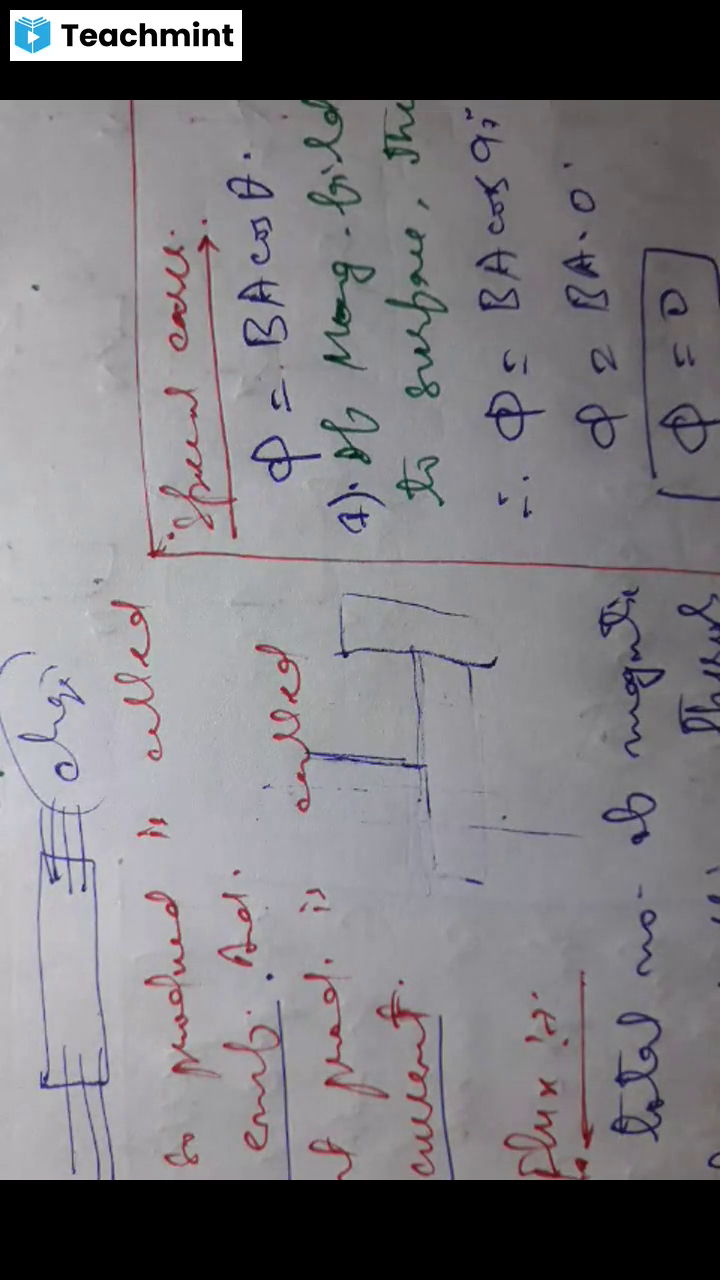 Teachmint
chgi
so produced is called
emf. And.
prod. is called
current.
Flux :→
total no- of magnetic
Special case:
Φ = BA cos θ.
1). If Mag. field
to surface, the
∴ Φ = BA cos 90
Φ = BA.0
Φ = 0